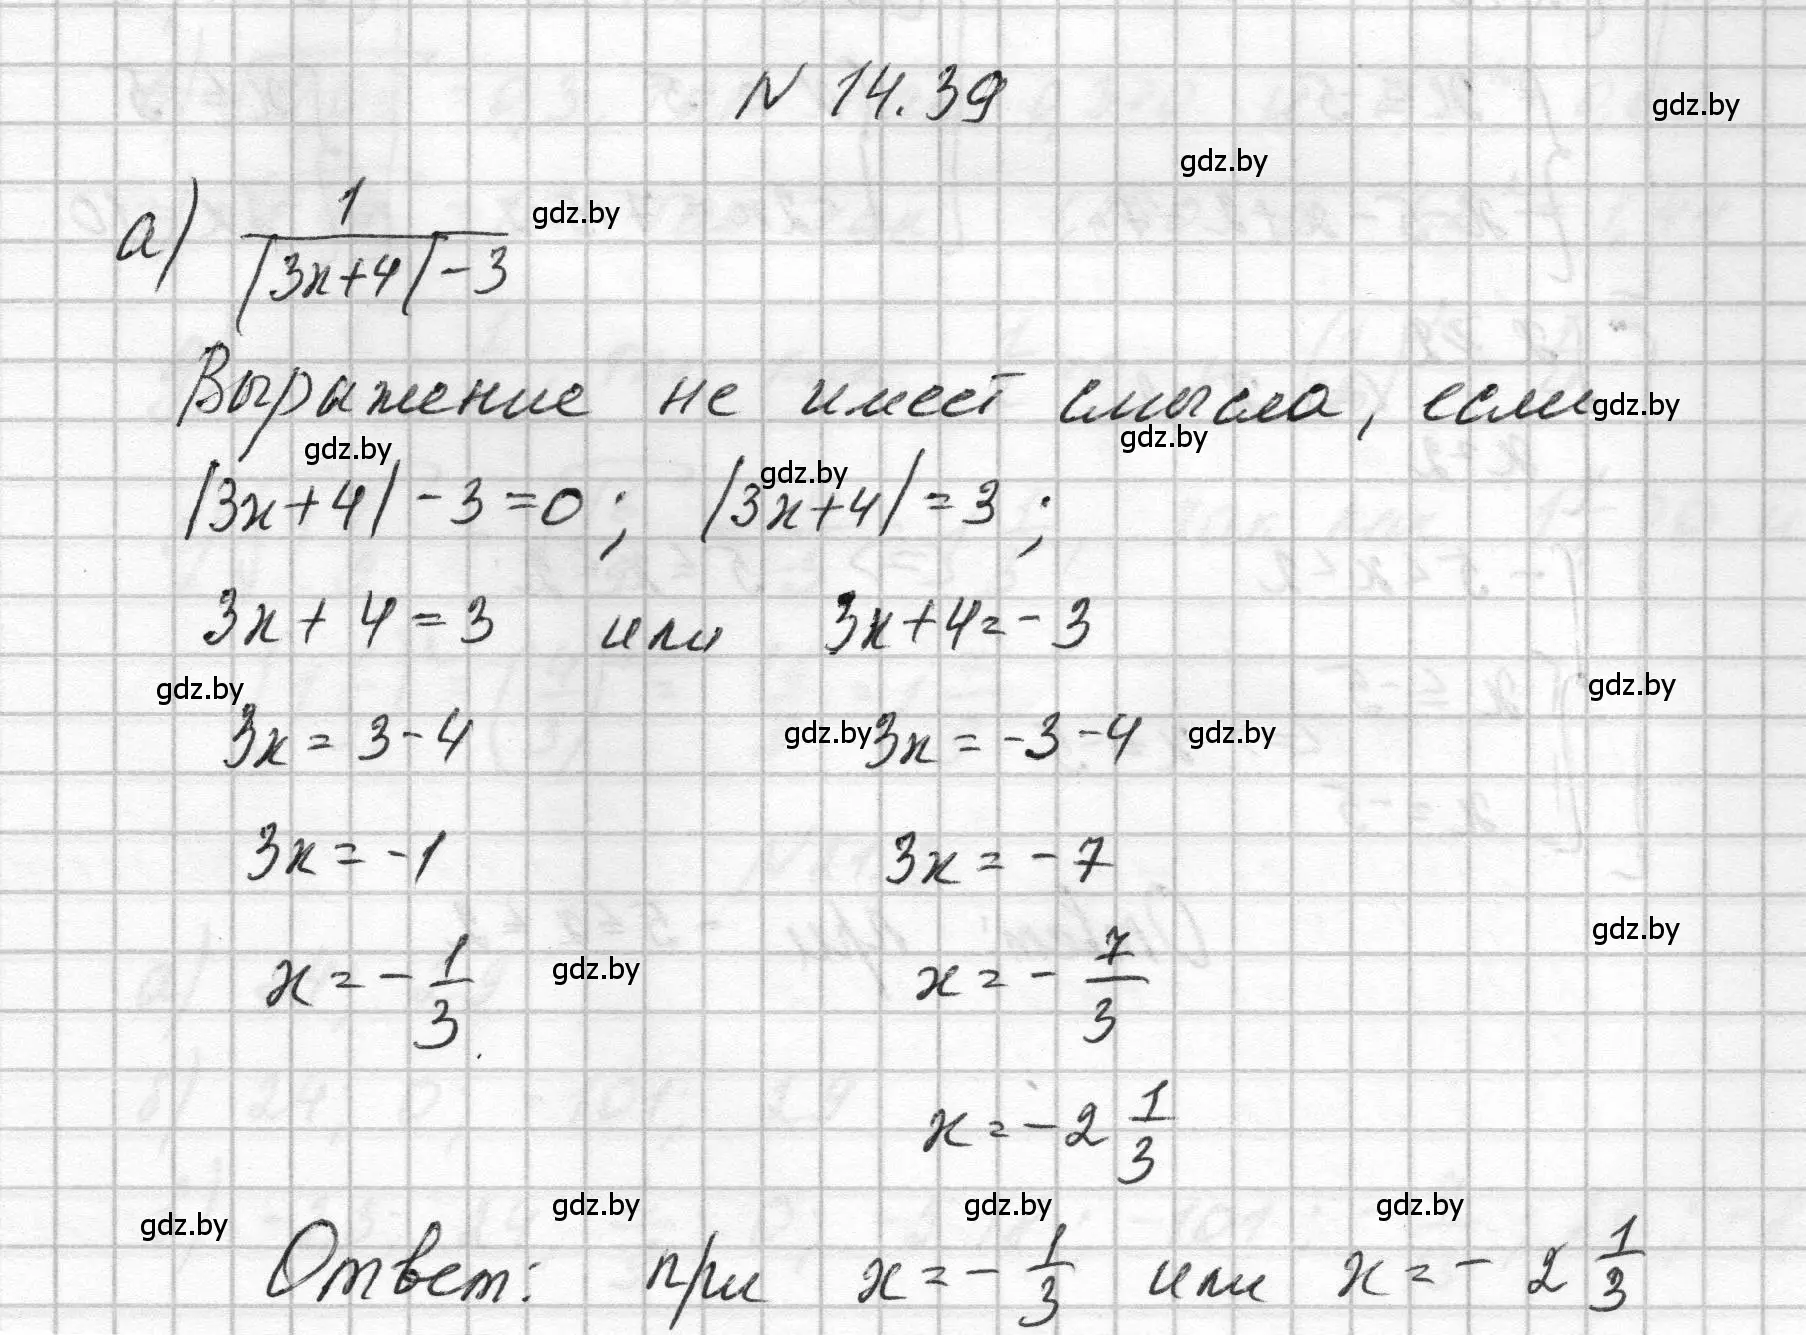 N 14.39
gdz.by
gdz.by
а) 1/(|3x+4|-3) gdz.by
Выражение не имеет смысла, если gdz.by
gdz.by gdz.by gdz.by
|3x+4|-3=0; |3x+4|=3;
3x+4=3 или 3x+4=-3
gdz.by gdz.by
3x=3-4 gdz.by 3x=-3-4 gdz.by
3x=-1 3x=-7
gdz.by
x=-1/3 gdz.by x=-7/3
x=-2 1/3
gdz.by gdz.by gdz.by gdz.by
Ответ: при x=-1/3 или x=-2 1/3